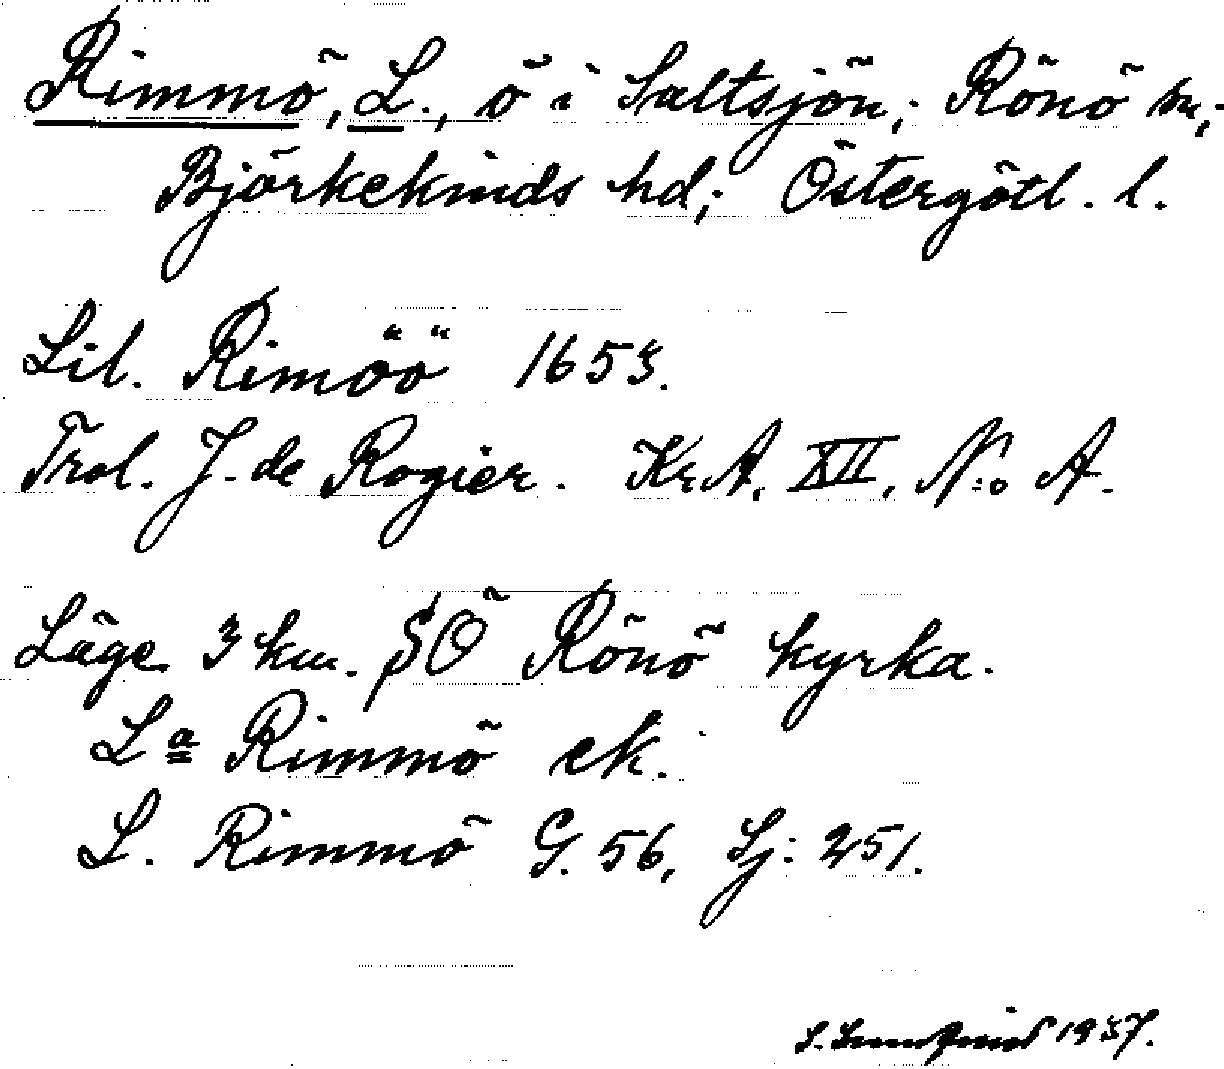 Rimmö, L., ö i Saltsjön; Rönö sn;
Björkekinds hd; Östergötl. l.
Lil. Rimöö 1653.
Trol. J. de Rogier. Kr.A. XII, N:o A.
Läge 3 km. SÖ Rönö kyrka.
La Rimmö ek.
L. Rimmö G. 56, Sj: 251.
S. 1937.